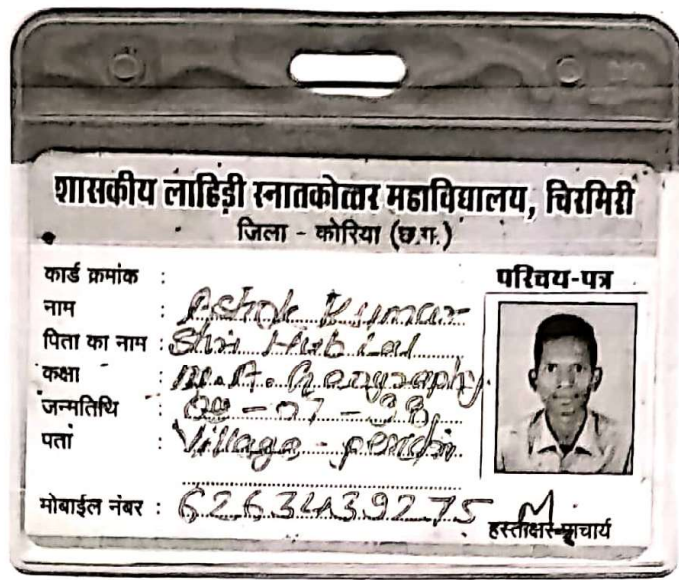 शासकीय लाहिड़ी स्नातकोत्तर महाविद्यालय, चिरमिरी
जिला - कोरिया (छ.ग.)
परिचय-पत्र
कार्ड क्रमांक :
नाम : Ashok Kumar
पिता का नाम : Shri Hub Lal
कक्षा : M.A. Geography
जन्मतिथि :
पता : Village -
मोबाईल नंबर : 6263439275
हस्ताक्षर प्राचार्य